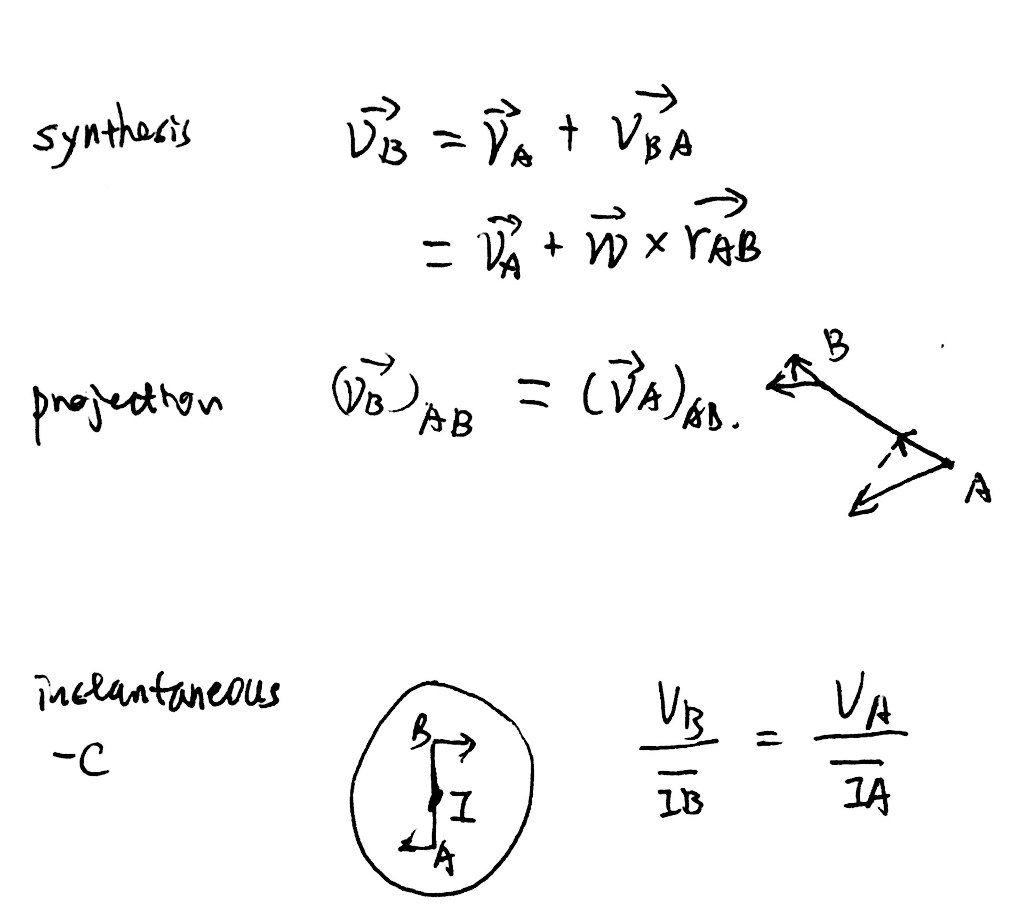 synthesis $\vec{V_B} = \vec{V_A} + \vec{V_{BA}}$
$= \vec{V_A} + \vec{w} \times \vec{r_{AB}}$
projection $(\vec{V_B})_{AB} = (\vec{V_A})_{AB}.$
B
A
instantaneous
-C
B
I
A
$\frac{V_B}{\overline{IB}} = \frac{V_A}{\overline{IA}}$